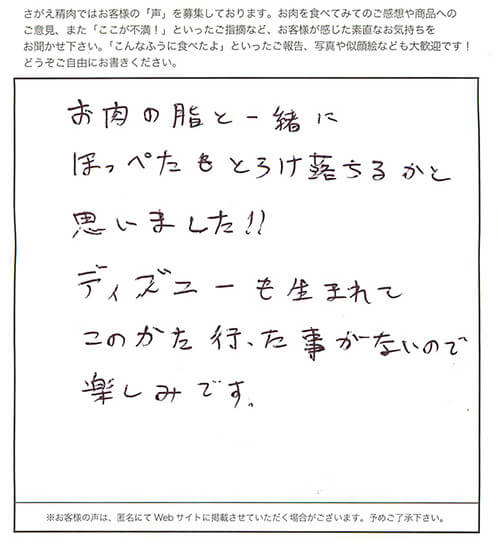 さがえ精肉ではお客様の「声」を募集しております。お肉を食べてみてのご感想や商品への
ご意見、また「ここが不満！」といったご指摘など、お客様が感じた素直なお気持ちを
お聞かせ下さい。「こんなふうに食べたよ」といったご報告、写真や似顔絵なども大歓迎です！
どうぞご自由にお書きください。
お肉の脂と一緒に
ほっぺたもとろけ落ちるかと
思いました!!
ディズニーも生まれて
このかた行った事がないので
楽しみです。
※お客様の声は、匿名にてWebサイトに掲載させていただく場合がございます。予めご了承下さい。